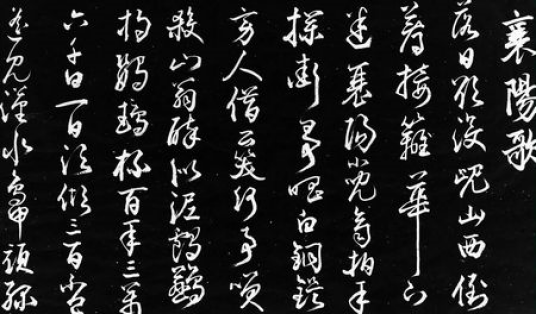 襄陽歌
落日欲沒峴山西倒
著接籬華下
迷襄陽小兒齊拍手
攔街爭唱白銅鞮
旁人借問笑何事笑
殺山翁醉似泥鸕鶿
杓鸚鵡杯百年三萬
六千日一日須傾三百杯
遙見漢水鴨頭綠